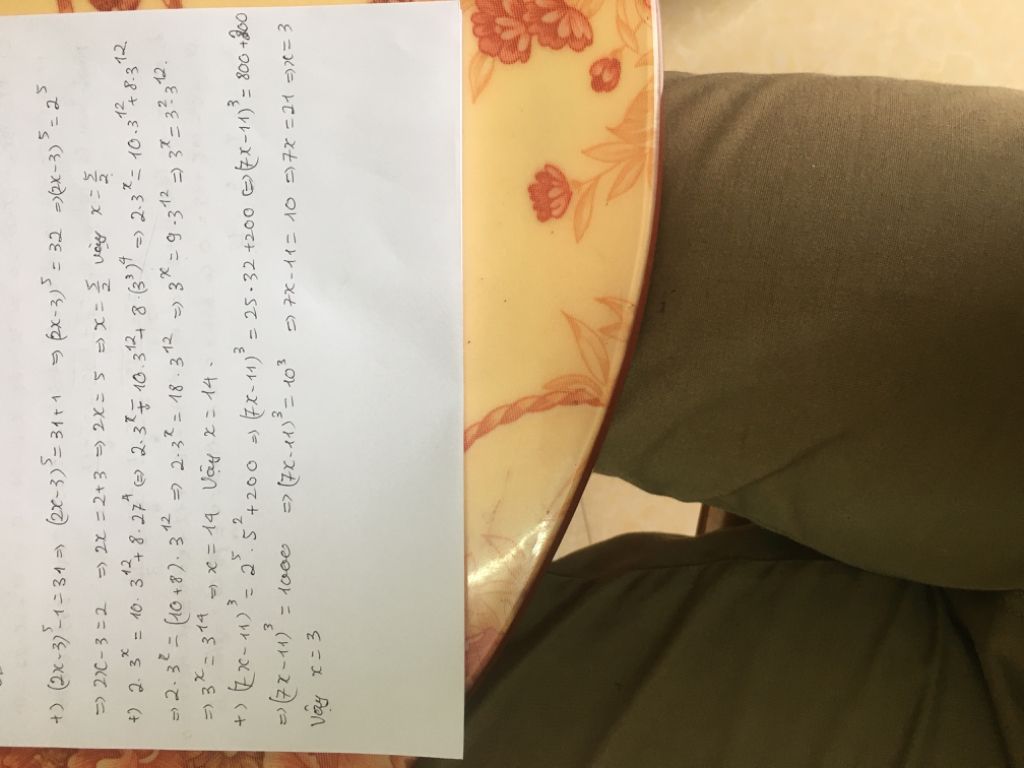 +) (2x-3)⁵-1=31 => (2x-3)⁵=31+1 => (2x-3)⁵=32 =>(2x-3)⁵=2⁵
=> 2x-3=2 => 2x=2+3 => 2x=5 => x=5/2 vậy x=5/2
+) 2.3ˣ=10.3¹²+8.27⁴ => 2.3ˣ=10.3¹²+8.(3³)⁴ => 2.3ˣ=10.3¹²+8.3¹²
=> 2.3ˣ=(10+8).3¹² => 2.3ˣ=18.3¹² => 3ˣ=9.3¹² => 3ˣ=3².3¹².
=> 3ˣ=3¹⁴ => x=14 Vậy x=14.
+) (7x-11)³=2⁵.5²+200 => (7x-11)³=25.32+200 <=>(7x-11)³=800+200
=>(7x-11)³=1000 => (7x-11)³=10³ => 7x-11=10 =>7x=21 =>x=3
Vậy x=3